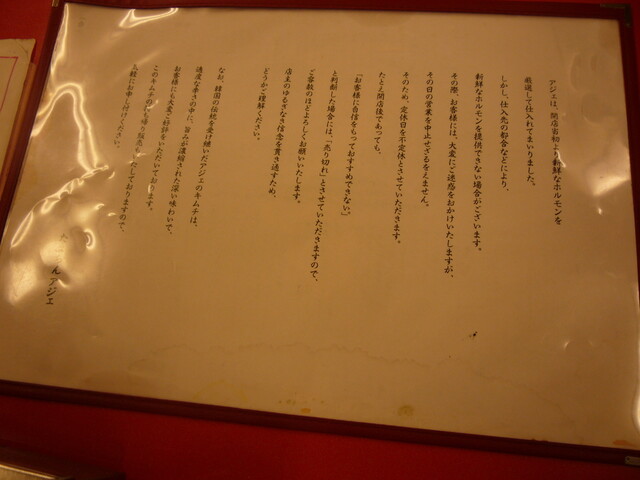 アジェは、開店当初より新鮮なホルモンを
厳選して仕入れてまいりました。
しかし、仕入先の都合などにより、
新鮮なホルモンを提供できない場合がございます。
その際、お客様には、大変にご迷惑をおかけいたしますが、
その日の営業を中止せざるをえません。
そのため、定休日を不定休とさせていただきます。
たとえ開店後であっても、
「お客様に自信をもっておすすめできない」
と判断した場合には、「売り切れ」とさせていただきますので、
ご容赦のほどよろしくお願いいたします。
店主のゆるぎなき信念を貫き通すため、
どうかご理解ください。
なお、韓国の伝統を受け継いだアジェのキムチは、
適度な辛さの中に、旨みが凝縮された深い味わいで、
お客様にも大変ご好評をいただいております。
このキムチのお持ち帰り販売もいたしておりますので、
お気軽にお申し付けください。
アジェ